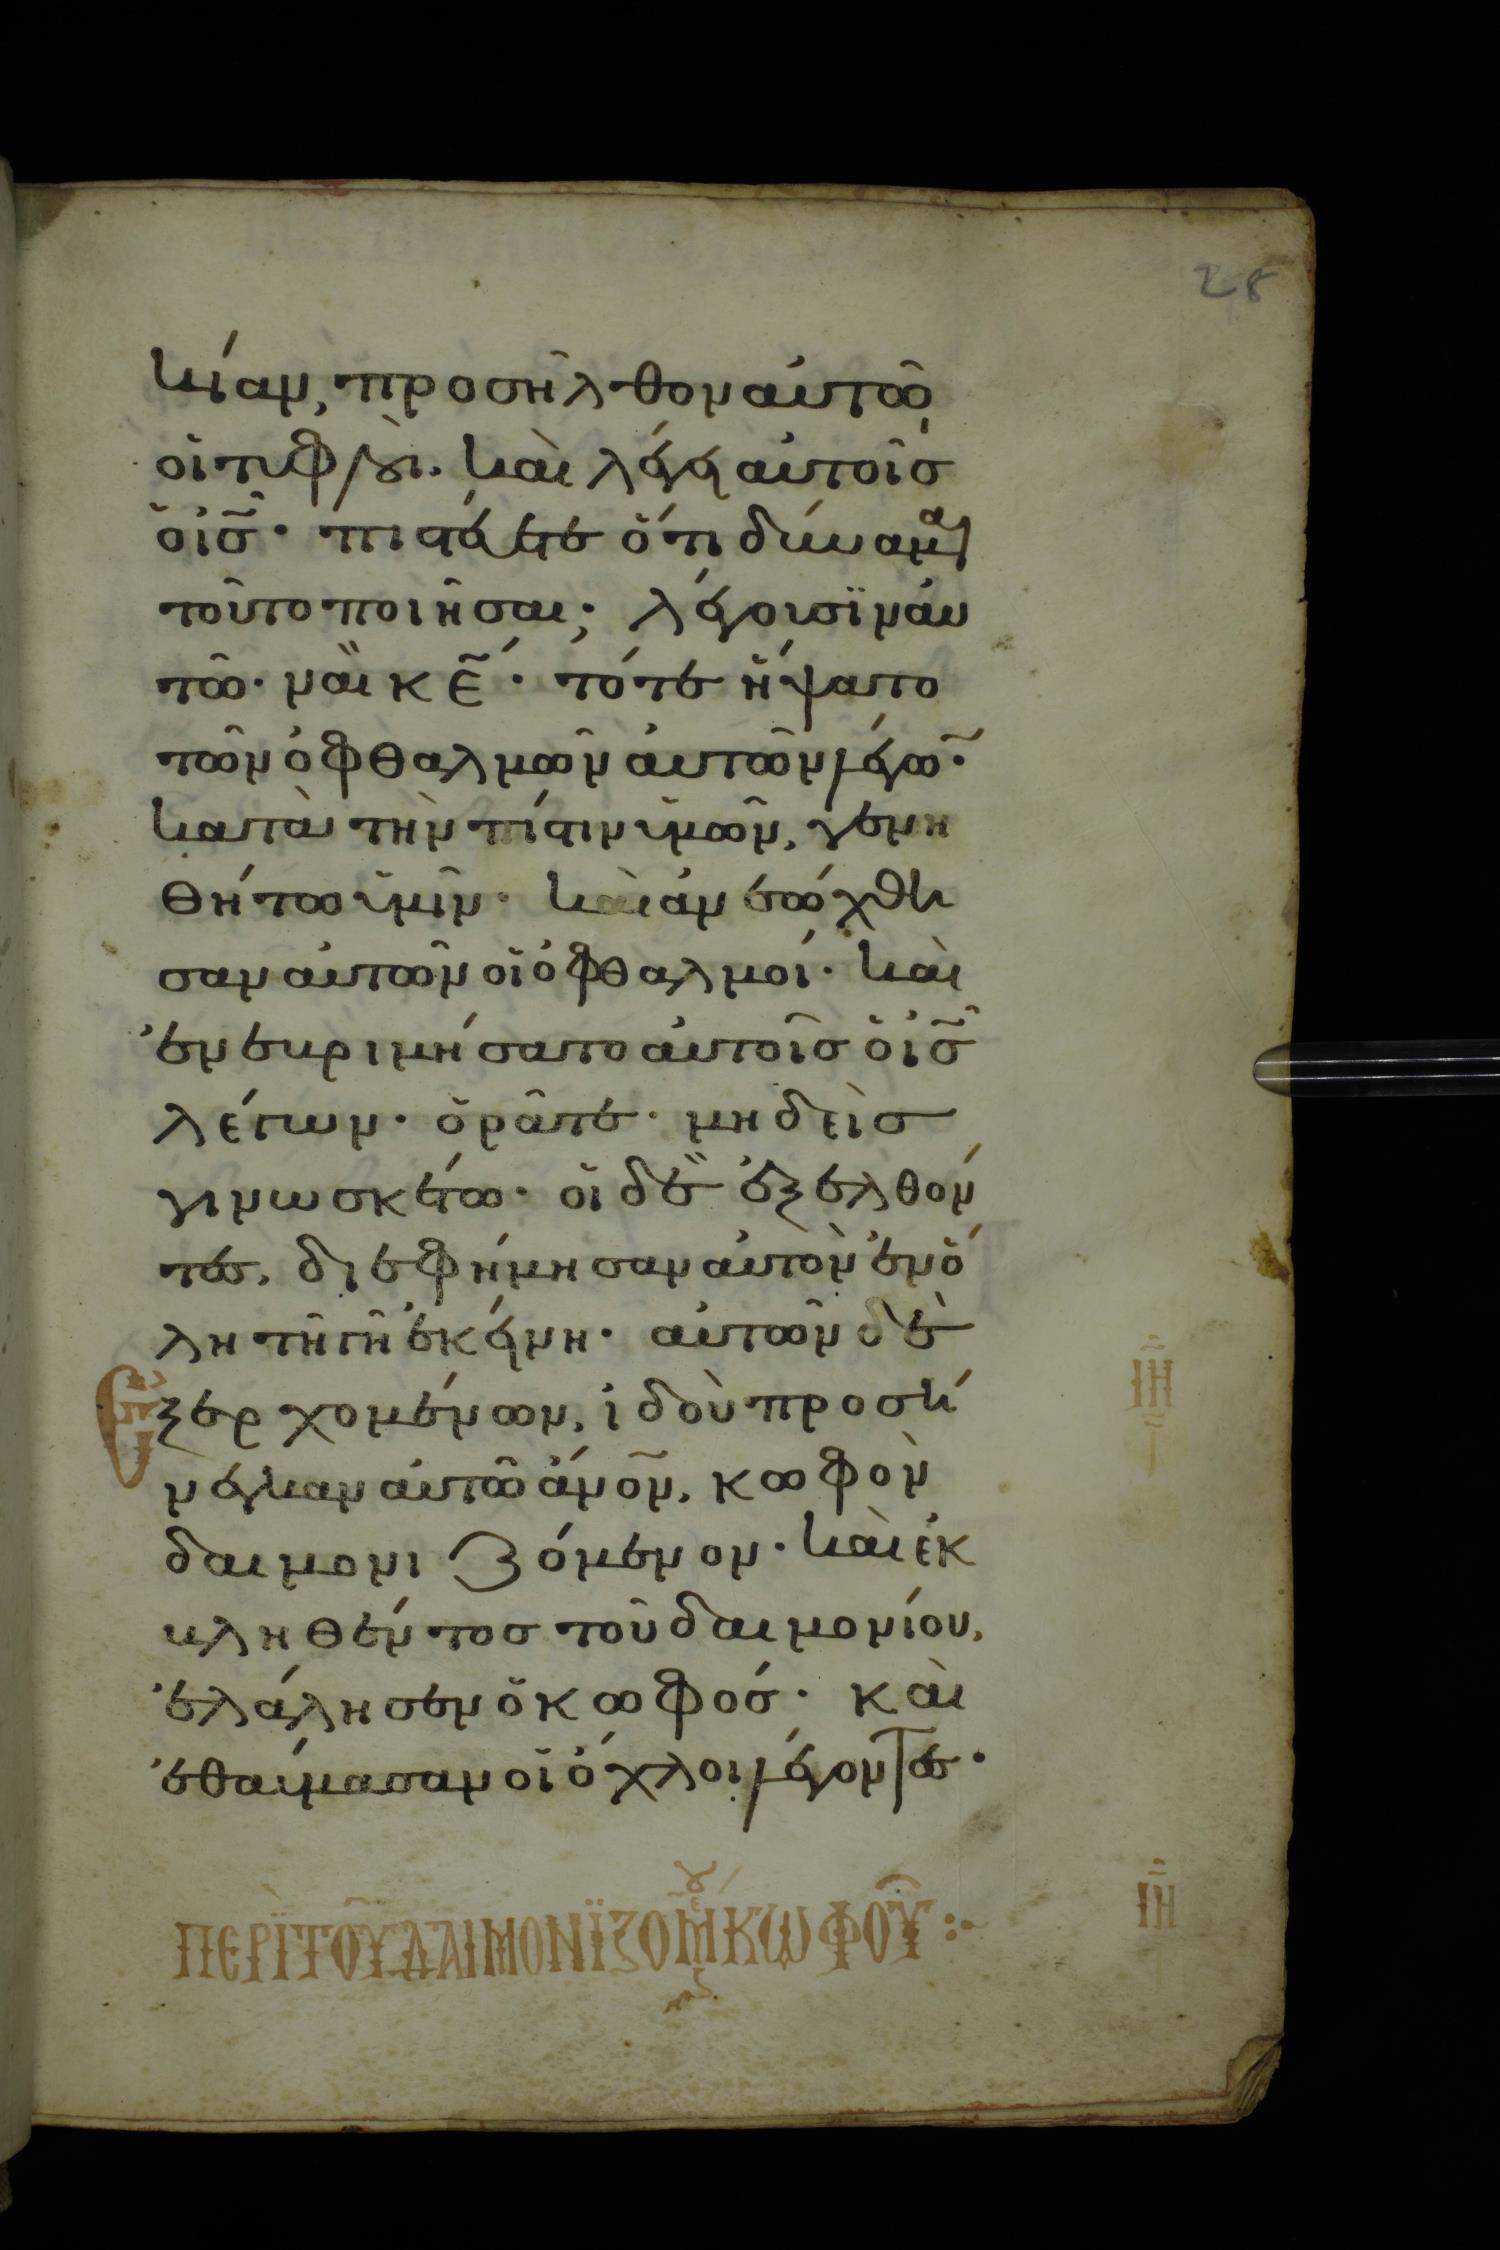 28
κίαν, προσῆλθον αὐτῶ
οἱ τυφλοὶ. καὶ λέγει αὐτοῖσ
ὁ ἰ̅σ̅· πιστεύετε ὅτι δύναμαι
τοῦτο ποιῆσαι; λέγουσϊν αὐ
τῶ· ναῒ κ̅ε̅· τότε ἥψατο
τῶν ὀφθαλμῶν αὐτῶν λέγω̅·
κατὰ τὴν πίστιν ὑμῶν, γενη
θήτω ὑμῖν· καὶ ἀνεώχθη
σαν αὐτῶν οἱ ὀφθαλμοί· καὶ
ἐνεβριμήσατο αὐτοῖσ ὁ ἰ̅σ̅
λέγων· ὁρᾶτε· μηδεὶσ
γινωσκέτω· οἱ δὲ ἐξελθόν
τεσ, διεφήμησαν αὐτὸν ἐν ὅ
λη τῆ γῆ ἐκείνη· αὐτῶν δὲ
Ἐξερχομένων, ἰδοὺ προσή
ι̅η̅
νεγκαν αὐτῶ ἀ̅ν̅ο̅ν̅, κωφὸν
δαιμονιζόμενον· καὶ ἐκ
βληθέντοσ τοῦ δαιμονίου,
ἐλάλησεν ὁ κωφόσ· καὶ
ἐθαύμασαν οἱ ὄχλοι λέγοντεσ·
ΠΕΡῚ ΤΟΥ͂ ΔΑΙΜΟΝΪΖΟΜΕΝΟΥ ΚΩΦΟΥ͂
ι̅η̅